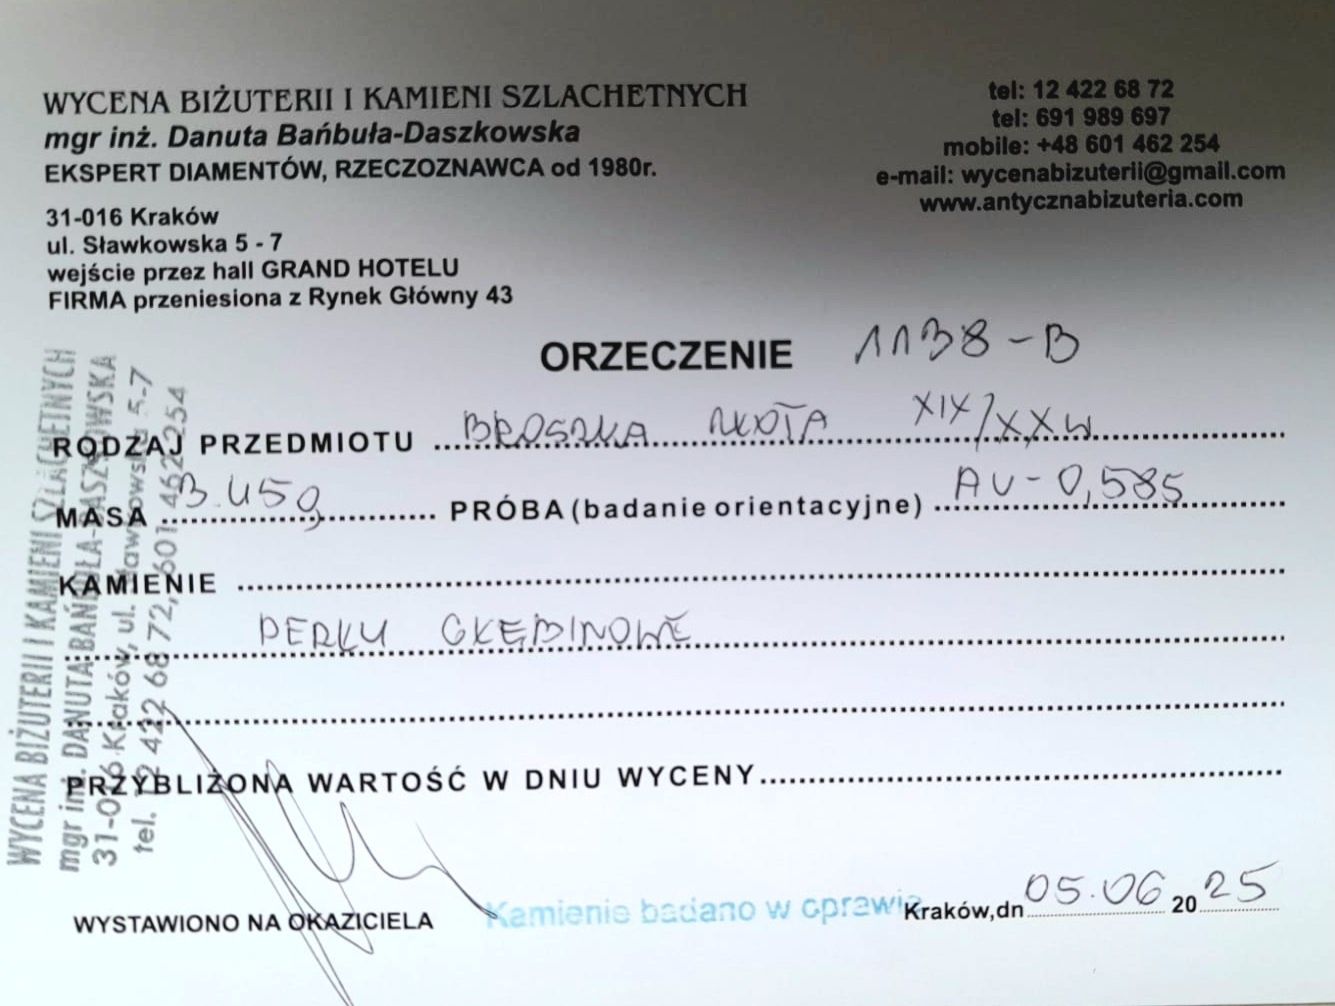 WYCENA BIŻUTERII I KAMIENI SZLACHETNYCH
mgr inż. Danuta Bańbuła-Daszkowska
EKSPERT DIAMENTÓW, RZECZOZNAWCA od 1980r.
31-016 Kraków
ul. Sławkowska 5 - 7
wejście przez hall GRAND HOTELU
FIRMA przeniesiona z Rynek Główny 43
tel: 12 422 68 72
tel: 691 989 697
mobile: +48 601 462 254
e-mail: wycenabizuterii@gmail.com
www.antycznabizuteria.com
ORZECZENIE 1138-B
RODZAJ PRZEDMIOTU BROSZKA ZŁOTA XIX/XXW
MASA 3.45g PRÓBA (badanie orientacyjne) AU-0,585
KAMIENIE
PERŁY GŁĘBINOWE
PRZYBLIŻONA WARTOŚĆ W DNIU WYCENY
WYSTAWIONO NA OKAZICIELA
Kamienie badano w oprawie
Kraków,dn 05.06 2025
WYCENA BIŻUTERII I KAMIENI SZLACHETNYCH
mgr inż. DANUTA BAŃBUŁA-DASZKOWSKA
31-016 Kraków, ul. Sławkowska 5-7
tel. 12 422 68 72, 601 462 254